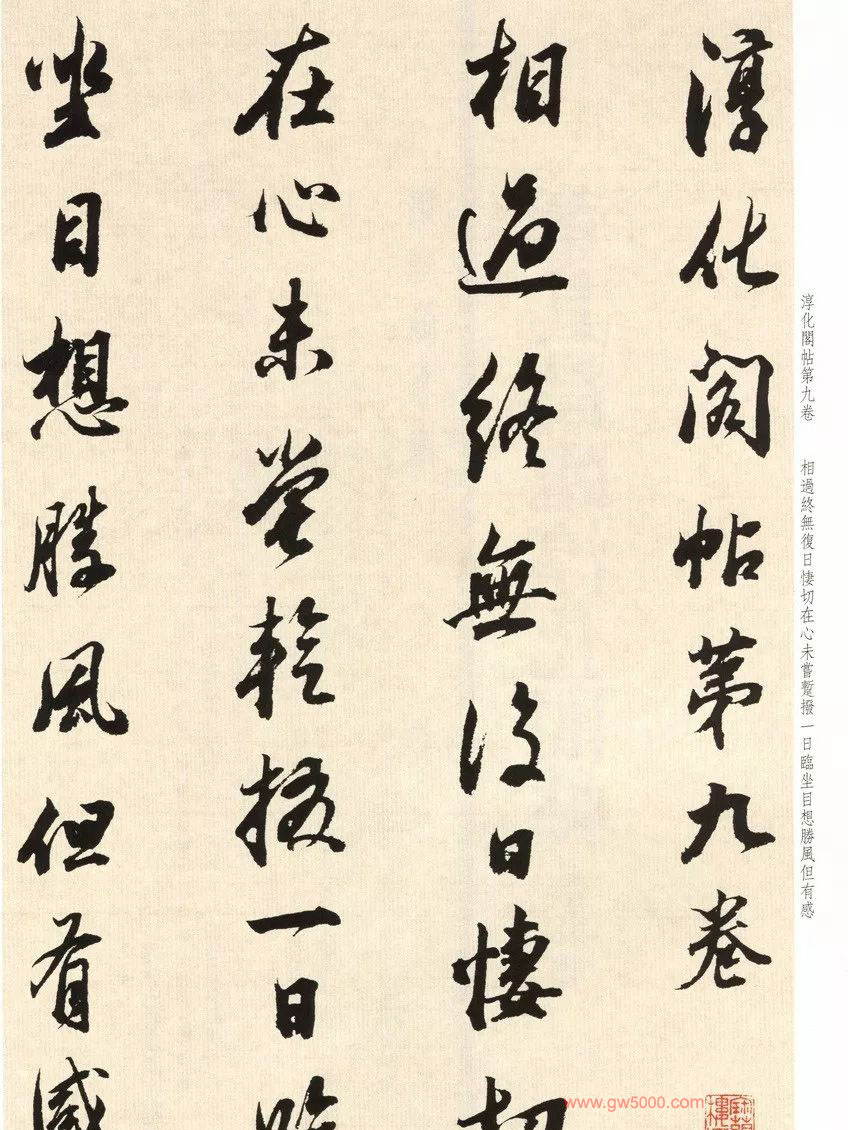 淳化閣帖第九卷
相過終無復日悽切
在心未嘗暫撥一日臨
坐目想勝風但有感
淳化閣帖第九卷 相過終無復日悽切在心未嘗蹔撥一日臨坐目想勝風但有感
www.gw5000.com